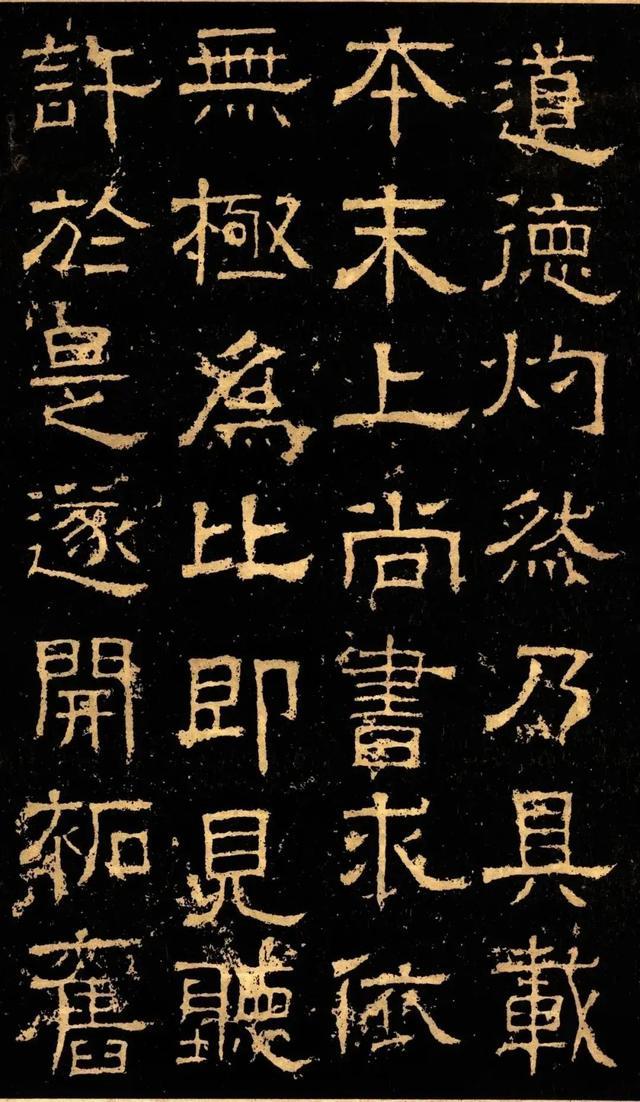 道德灼然乃具載
本末上尚書求依
無極為比即見聽
許於是遂開祏舊